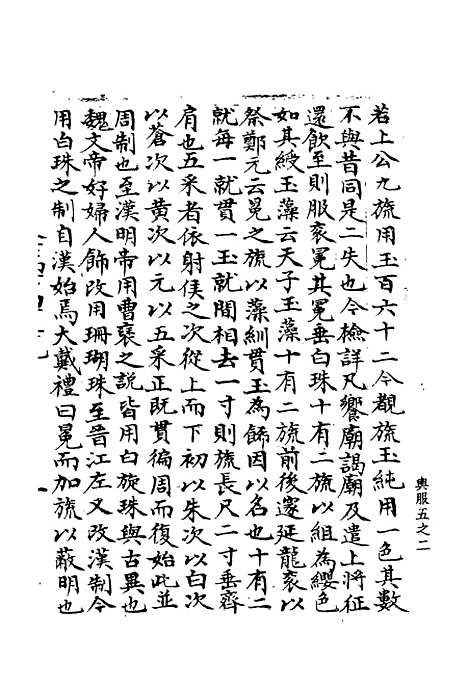 若上公九旒用玉百六十二今觀旒玉純用一色其數
不與昔同是二失也今檢詳凡饗廟謁廟及遣上將征
還飲至則服衮冕其冕垂白珠十有二旒以組為纓色
如其綬玉藻云天子玉藻十有二旒前後邃延龍衮以
祭鄭元云冕之旒以藻紃貫玉為飾因以名也十有二
就每一就貫一玉就間相去一寸則旒長尺二寸垂齊
肩也五采者依射侯之次從上而下初以朱次以白次
以蒼次以黃次以元以五采正既貫徧周而復始此並
周制也至漢明帝用曹襃之說皆用白旋珠與古異也
魏文帝好婦人飾改用珊瑚珠至晉江左又改漢制今
用白珠之制自漢始焉大戴禮曰冕而加旒以蔽明也
輿服五之二